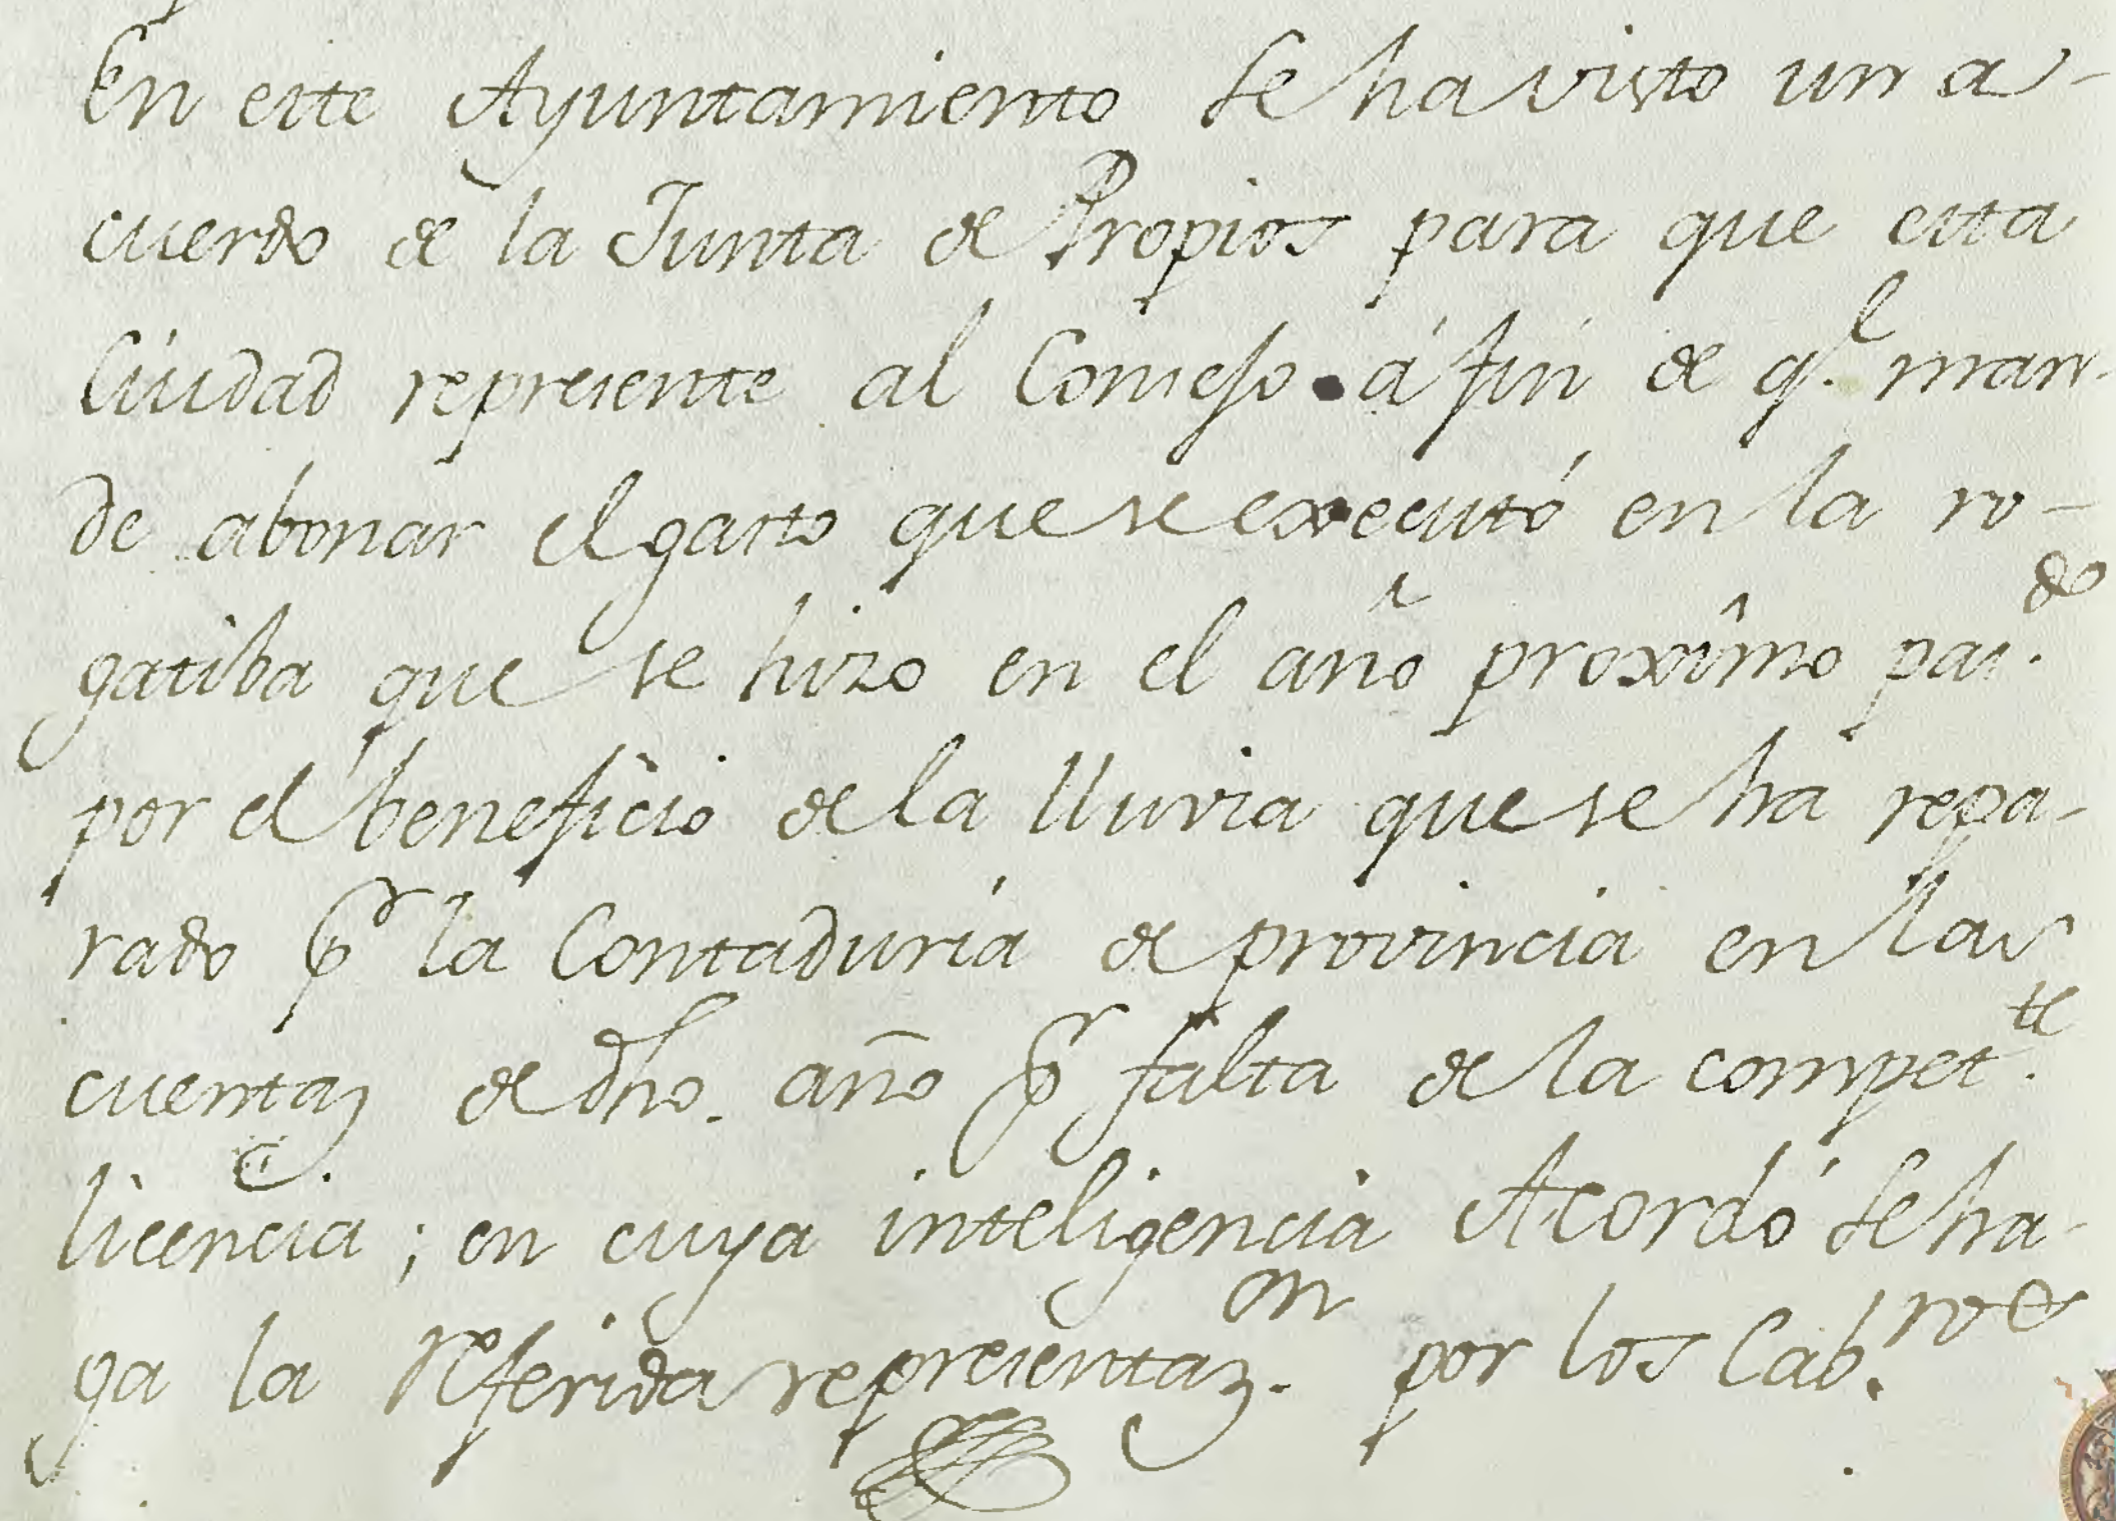 En este Ayuntamiento se ha visto un a-
cuerdo de la Junta de Propios para que esta
Ciudad represente al Consejo á fin de q.e man-
de abonar el gasto que se executó en la ro-
gatiba que se hizo en el año proximo pas.do
por el beneficio de la lluvia que se ha repa-
rado pr la Contaduría de provincia en las
cuentas de dho. año pr falta de la compet.te
licencia; en cuya inteligencia Acordó se ha-
ga la referida representaz.on por los Cab.ros